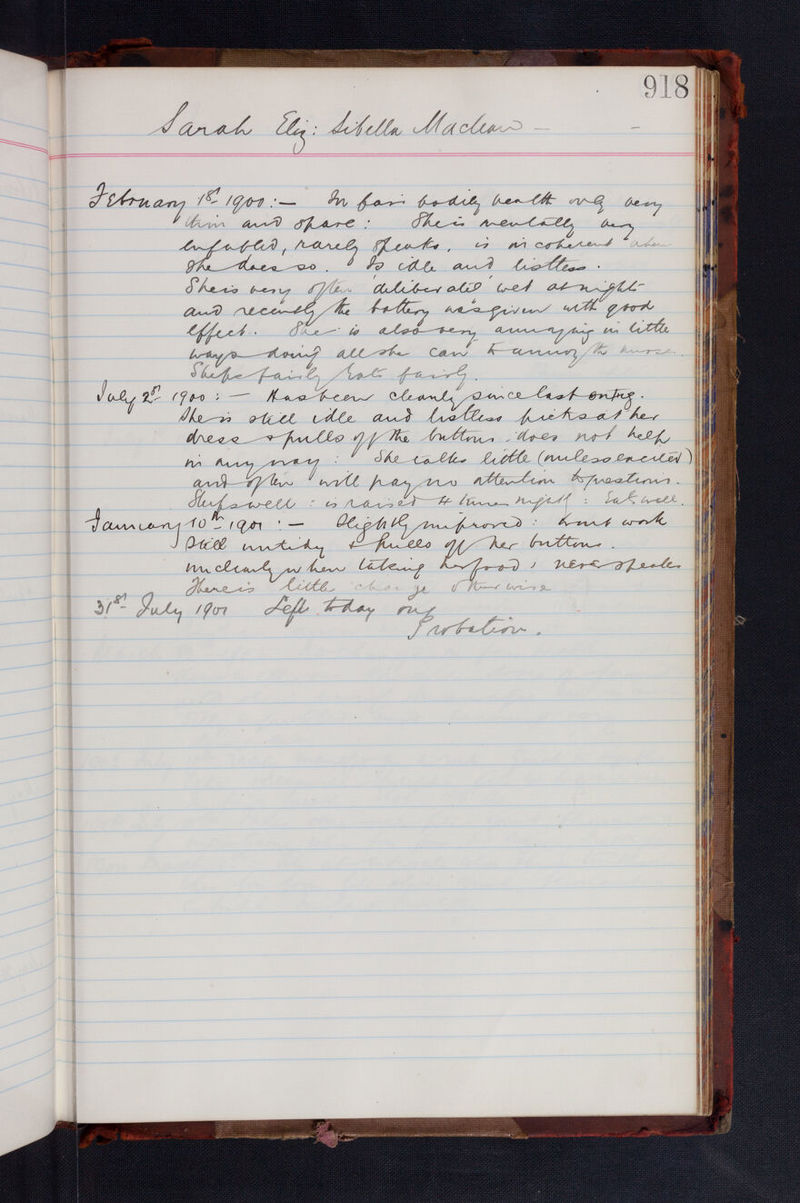 918
Sarah Eliz: Sibella Maclean —
February 1st 1900:— In fair bodily health only very
thin and spare: She is mentally very
enfeebled, rarely speaks, is incoherent when
she does so. Is idle and listless.
She is very often 'deliberately' wet at night
and recently the battery was given with good
effect. She is also very annoying in little
ways doing all she can to annoy the nurses.
Sleeps fairly Eats fairly.
July 2nd 1900:— Has been cleanly since last entry.
She is still idle and listless picks at her
dress & pulls off the buttons. does not help
in any way: She talks little (unless excited)
and often will pay no attention to questions.
Sleeps well: is raised 4 times nightly: Eats well.
January 10th 1901:— Slightly improved: wont work
Still untidy & pulls off her buttons.
uncleanly when taking her food, never speaks
There is little change otherwise
31st July 1901 Left today on
Probation.